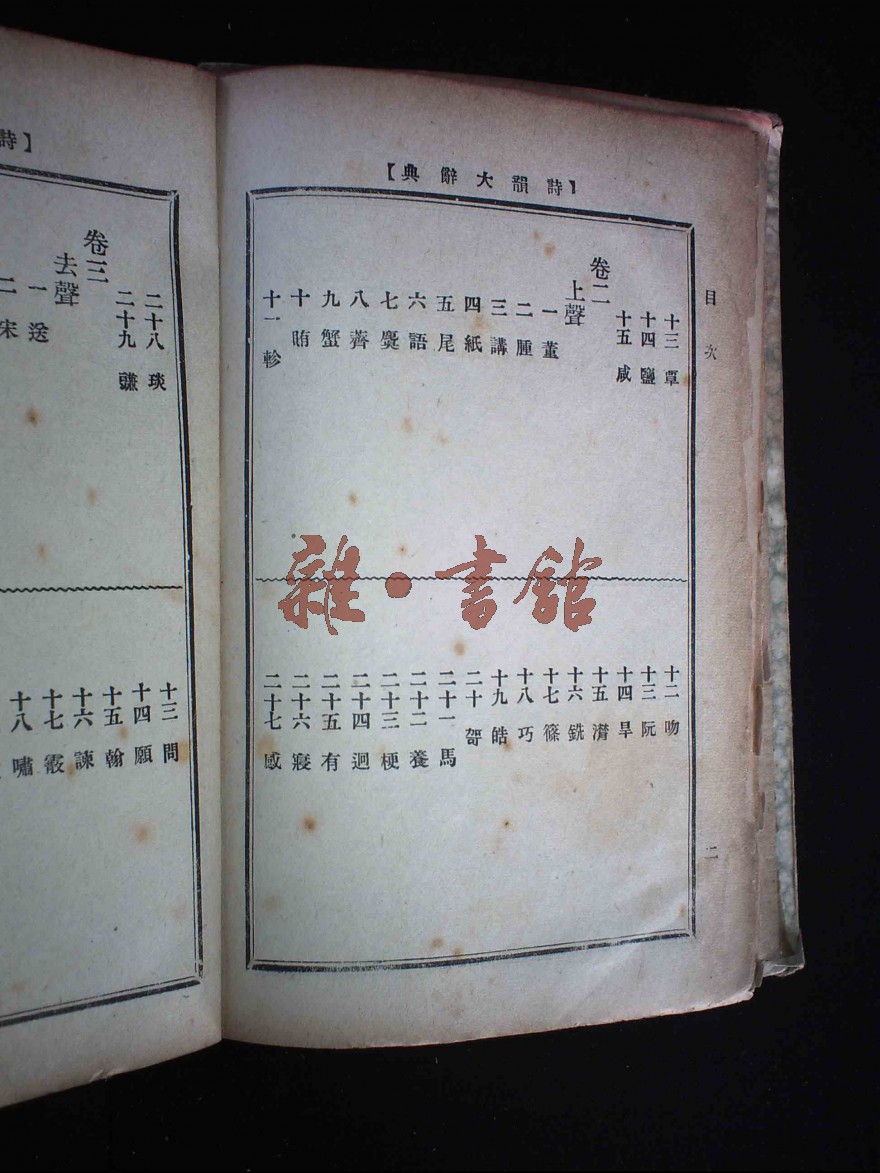 【詩韻大辭典】
目次
十三 覃
十四 鹽
十五 咸
卷二
上聲
一 董
二 腫
三 講
四 紙
五 尾
六 語
七 麌
八 薺
九 蟹
十 賄
十一 軫
十二 吻
十三 阮
十四 旱
十五 潸
十六 銑
十七 篠
十八 巧
十九 皓
二十 哿
二十一 馬
二十二 養
二十三 梗
二十四 迥
二十五 有
二十六 寢
二十七 感
二
雜·書館
詩】
二十八 琰
二十九 豏
卷三
去聲
一 送
二 宋
十三 問
十四 願
十五 翰
十六 諫
十七 霰
十八 嘯